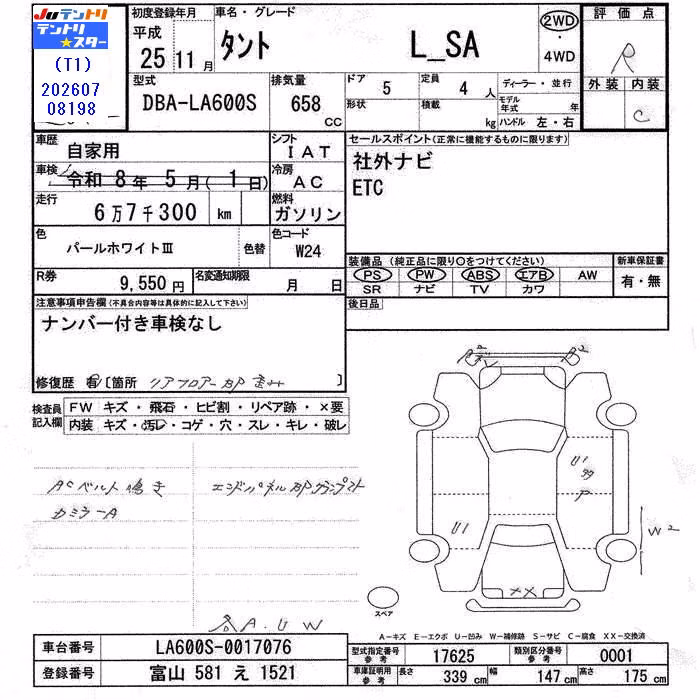 JUテントリ
テントリ
★スター
(T1)
202607
08198
初度登録年月
平成
25 11月
車名・グレード
タント L_SA
2WD
・
4WD
評価点
R
外装 内装
C
型式
DBA-LA600S
排気量
658
CC
ドア 5
形状
定員 4人
積載 kg
ディーラー・並行
モデル年式 年
ハンドル 左・右
車歴
自家用
シフト
IAT
車検
令和 8年 5月( 1日)
冷房
AC
走行
6万7千300 km
燃料
ガソリン
色
パールホワイトⅢ
色替
色コード
W24
R券
9,550円
名変通知期限
月 日
セールスポイント(正常に機能するものに限ります)
社外ナビ
ETC
装備品 (純正品に限り○をつけてください)
PS PW ABS エアB AW
SR ナビ TV カワ
新車保証書
有・無
後日品
注意事項申告欄(不具合内容等は具体的に記入して下さい)
ナンバー付き車検なし
修復歴 有 〔箇所 リアフロアー部歪み 〕
検査員
記入欄
FW キズ・飛石・ヒビ割・リペア跡・×要
内装 キズ・汚レ・コゲ・穴・スレ・キレ・破レ
ACベルト鳴き
カミラーA
エンドパネル部クランプマスト
各A.U W
U1
U1
W2
××
スペア
A-キズ E-エクボ U-凹み W-補修跡 S-サビ C-腐食 XX-交換済
車台番号 LA600S-0017076
登録番号 富山 581 え 1521
型式指定番号
参考
17625
類別区分番号
参考
0001
車庫証明用
参考
長さ 339 cm 幅 147 cm 高さ 175 cm